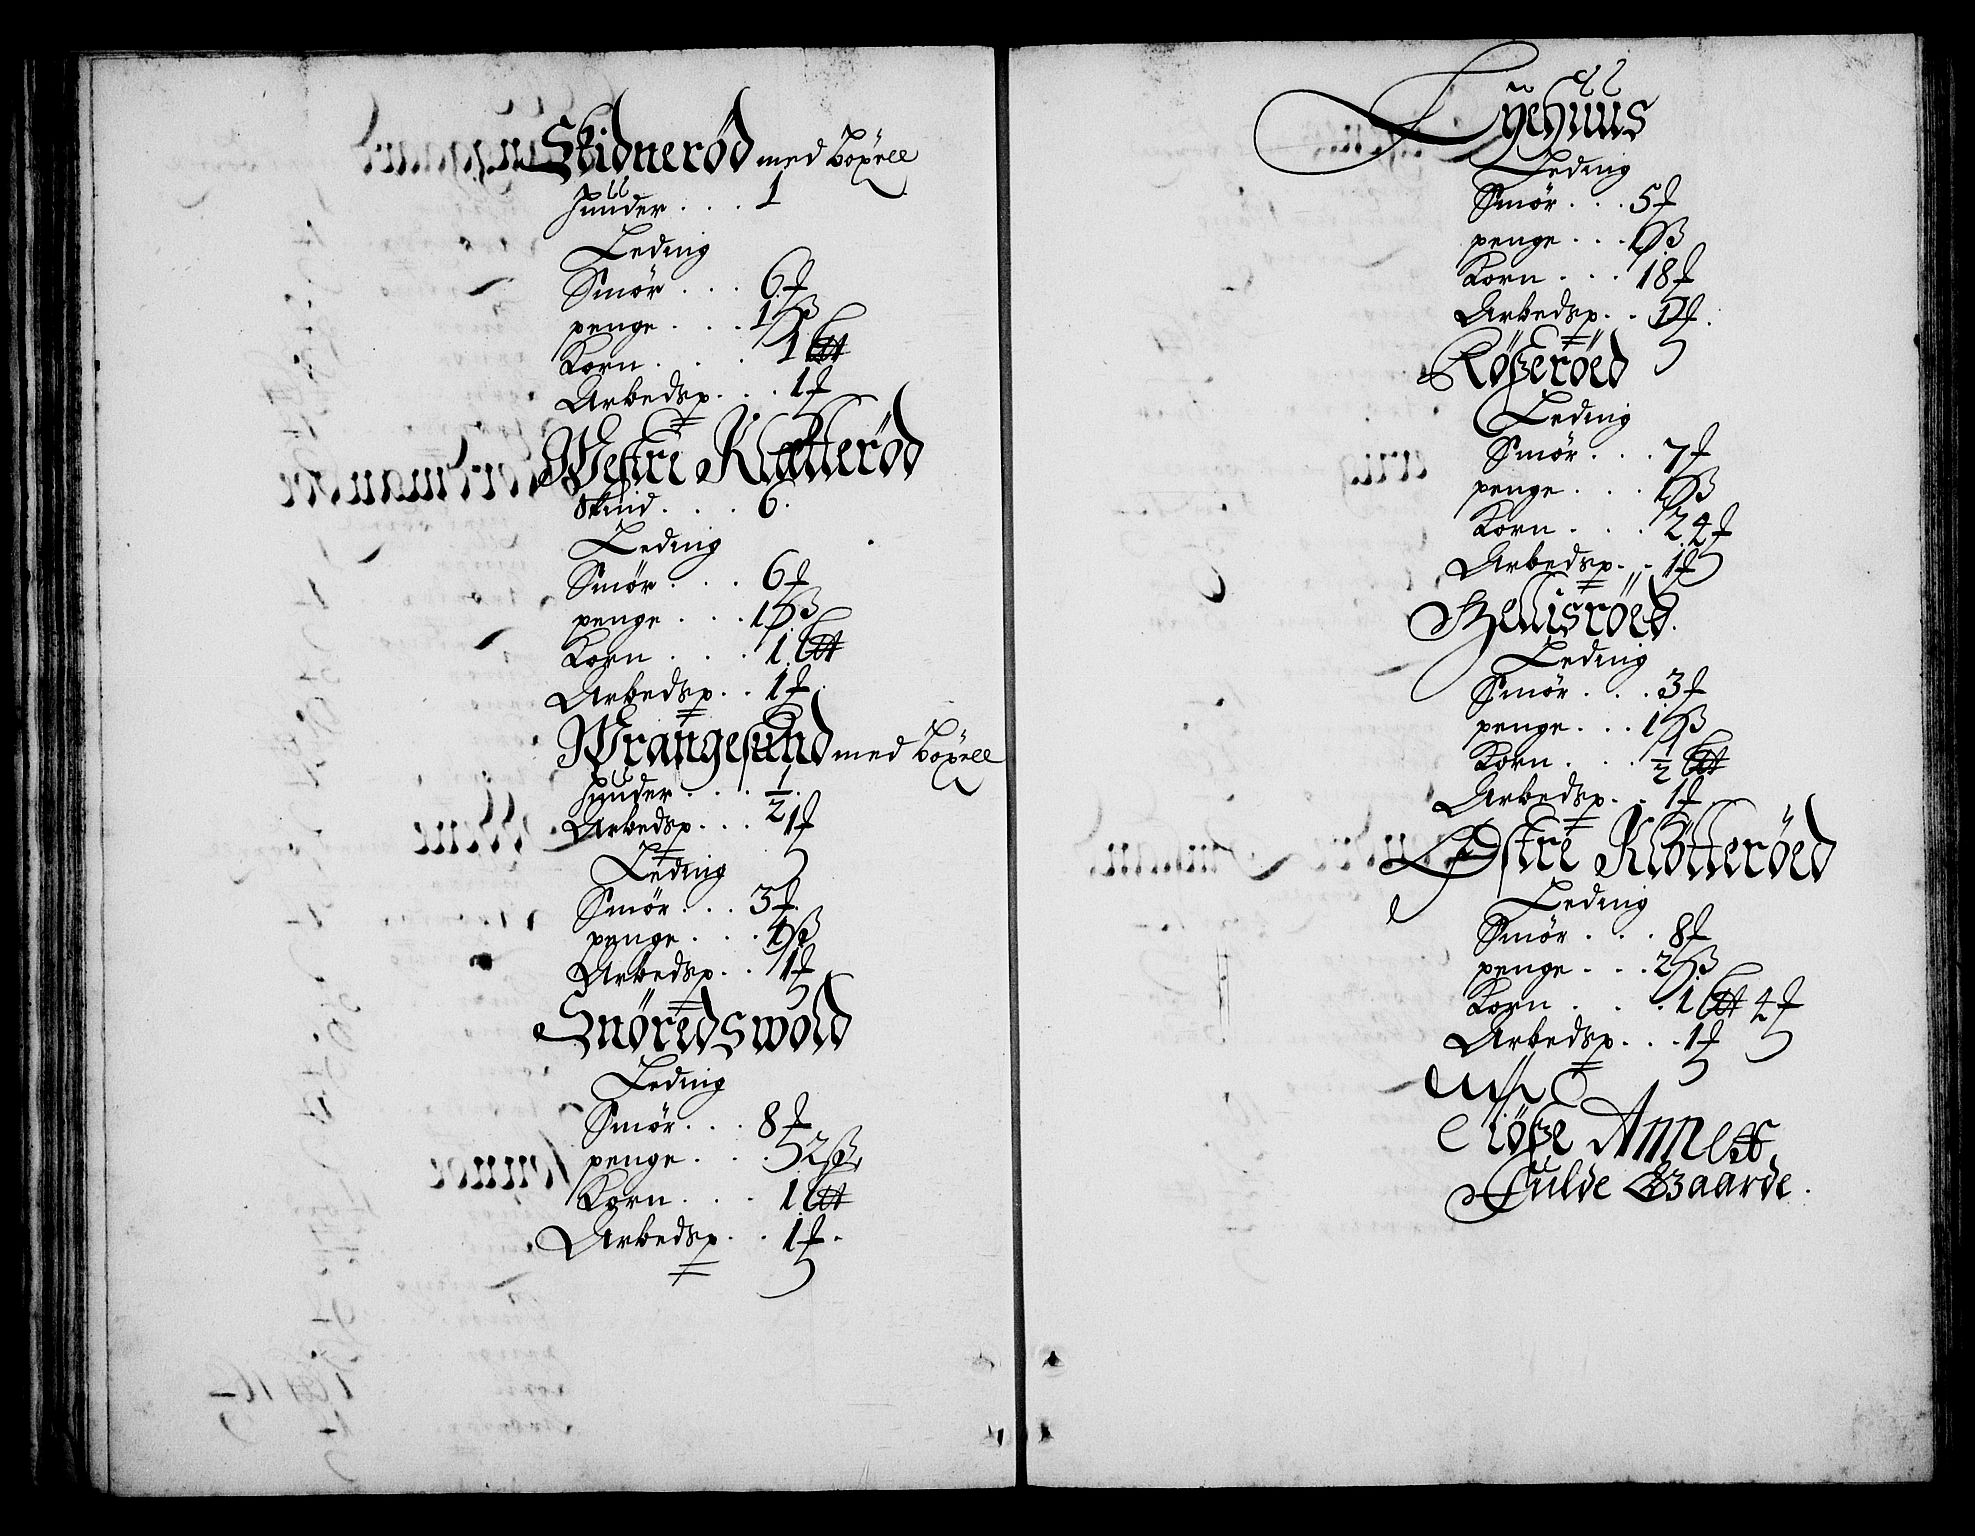 Skidnerød med Boxell
Huuder . . . 1
Leding
Smör . . . 6 ₰
penge . . . 1 ß
Korn . . . 1 ℔
Arbedsp. . . 1 ₰
Westre Klötterød
Skind . . . . 6.
Leding
Smör . . . 6 ₰
penge . . . 1 ß
Korn . . . 1 ℔
Arbedsp. . . 1 ₰
Wrangesund med Boxell
Huuder . . . ½.
Arbedsp. . . 1 ₰
Leding
Smör . . . 3 ₰
penge . . . ß
Arbedsp. . . 1 ₰
Smöredswold
Leding
Smör . . . 8 ₰
penge . . . 2 ß
Korn . . . 1 ℔
Arbedsp. . . 1 ₰.
Lyehuus
Leding
Smör . . . 5 ₰
penge . . . 1 ß
Korn . . . 18 ₰
Arbedsp. . . 1 ₰.
Rößeröed
Leding
Smör . . . 7 ₰
penge . . . 1 ß
Korn . . . 22 ₰
Arbedsp. . . 1 ₰
Hellisröed.
Leding
Smör . . . 3 ₰
penge . . . 1 ß
Korn . . . ½ ℔
Arbedsp. . . 1 ₰
Östre Klötteröed
Leding
Smör . . . 8 ₰
penge . . . 2 ß
Korn . . . 1 ℔ 4 ₰
Arbedsp. . . 1 ₰
Röße Annex
Fulde Gaarde.